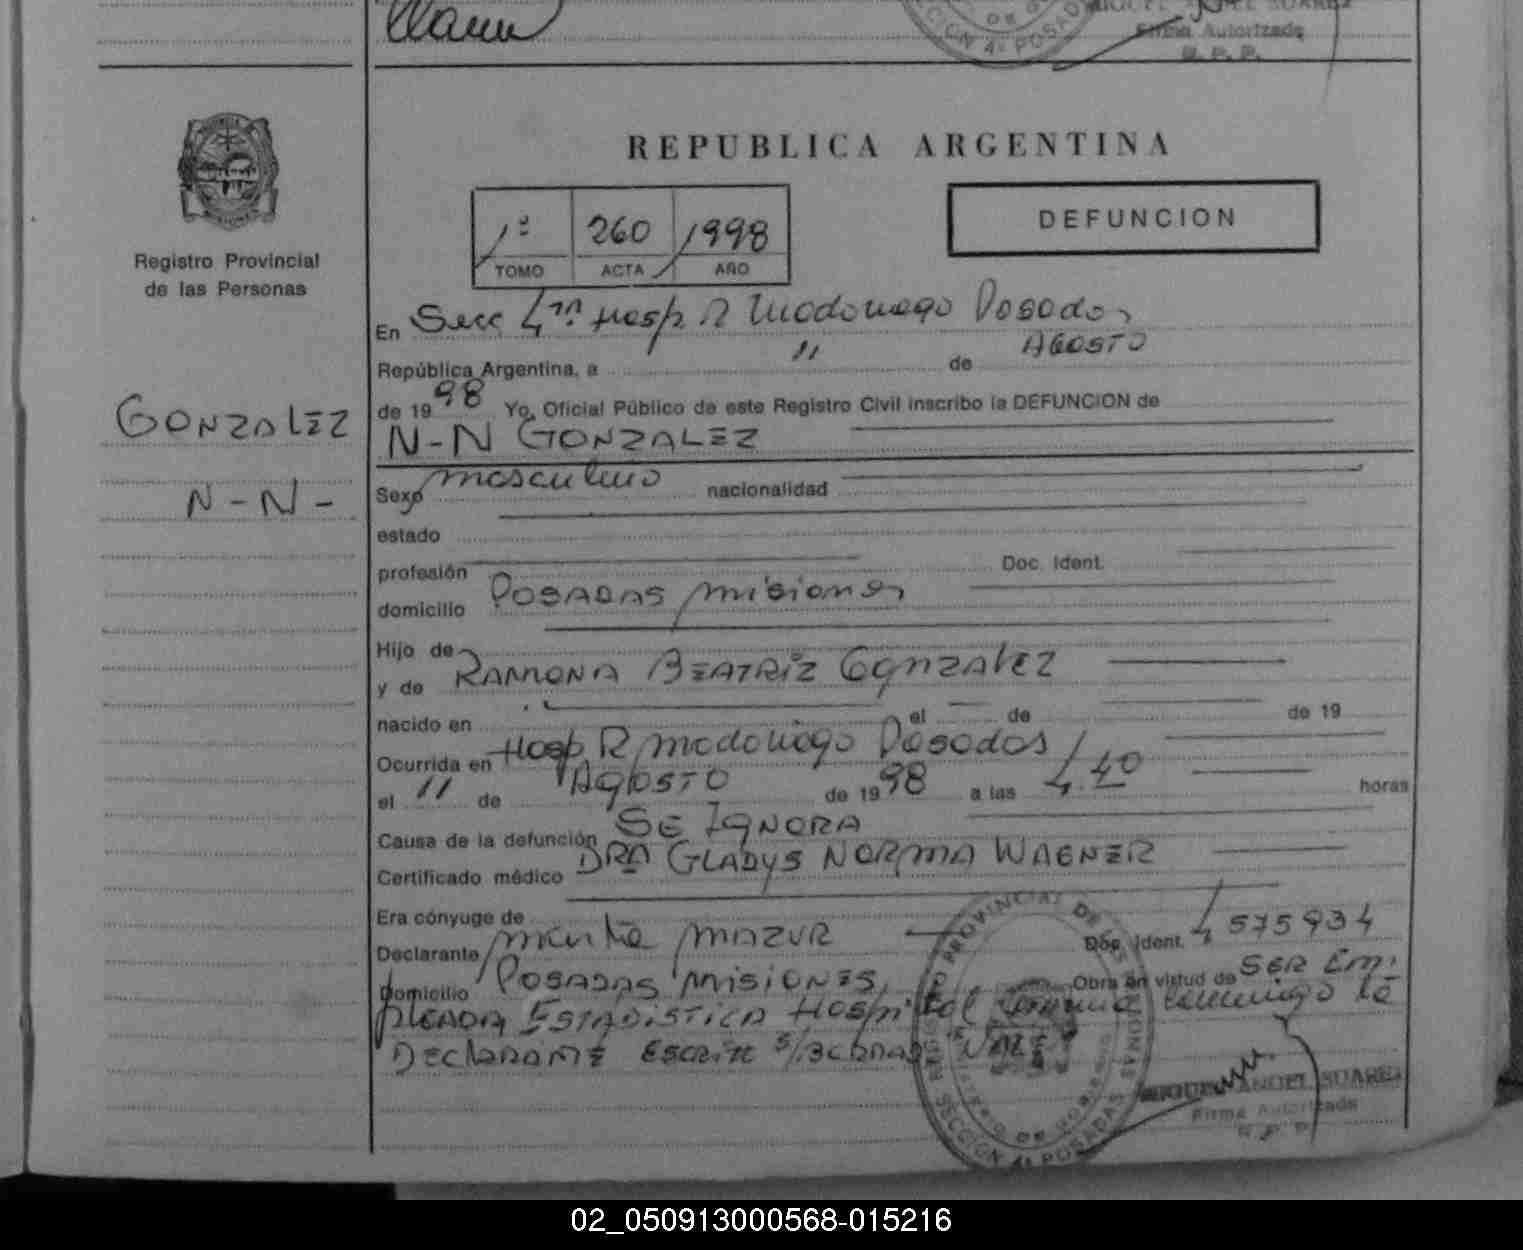 CCION 4ª POSADAS
DE
Firma Autorizada
R. P. P.
Registro Provincial
de las Personas
GONZALEZ
N-N-
REPUBLICA ARGENTINA
1º 260 1998
TOMO ACTA AÑO
DEFUNCION
En Secc 4ta Hosp R Madariaga Posadas
República Argentina, a 11 de AGOSTO
de 1998 Yo, Oficial Público de este Registro Civil inscribo la DEFUNCION de
N-N GONZALEZ
Sexo masculino nacionalidad
estado
profesión Doc. Ident.
domicilio POSADAS misiones
Hijo de
y de RAMONA BEATRIZ GONZALEZ
nacido en el de de 19
Ocurrida en Hosp R madariaga Posadas
el 11 de AGOSTO de 1998 a las 4.40 horas
Causa de la defunción SE IGNORA
Certificado médico DRA GLADYS NORMA WAGNER
Era cónyuge de
Declarante MAZUR Doc. Ident. 4575934
Domicilio POSADAS MISIONES Obra en virtud de SER Em-
PLEADA ESTADISTICA Hospital conmigo la
DECLARANTE
REGISTRO PROVINCIAL DE LAS
SECCION 4ª POSADAS
MIGUEL ANGEL SUAREZ
Firma Autorizada
R. P. P.
02_050913000568-015216